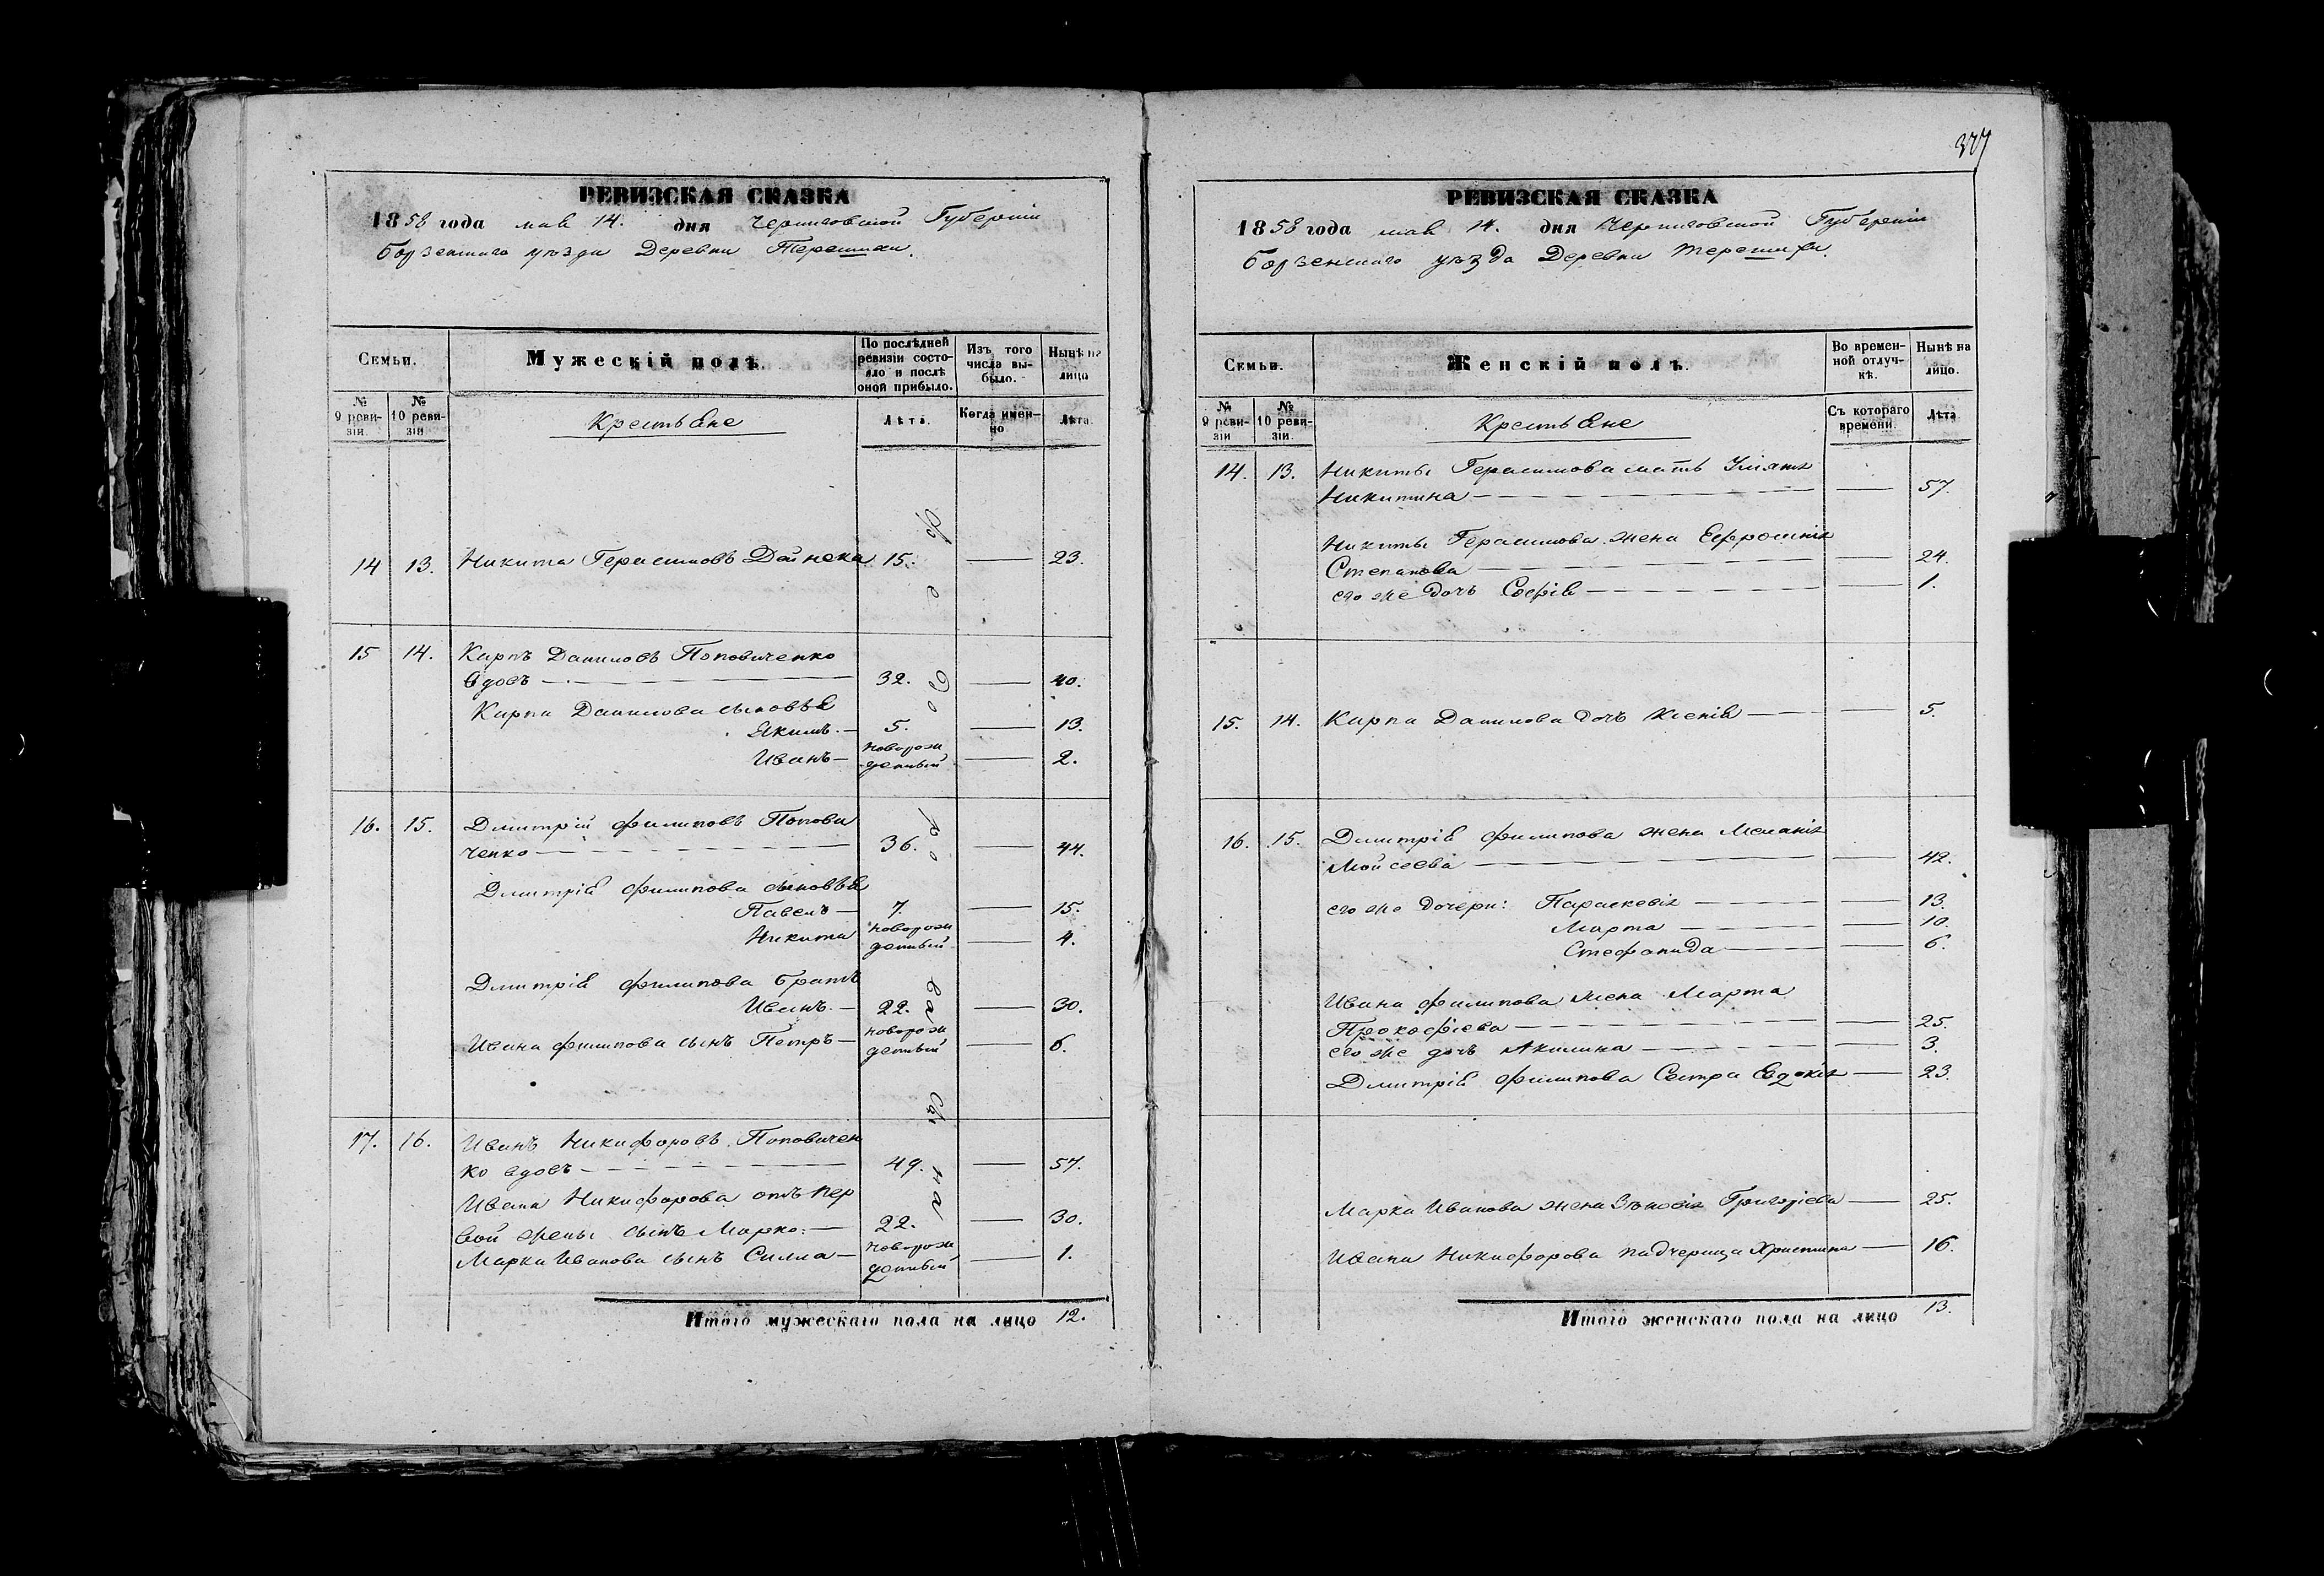 377
РЕВИЗСКАЯ СКАЗКА
1858 года мая 14. дня Черниговской Губерніи
Борзенского уѣзда Деревни Терешихи.
Семьи.
Мужескій полъ.
По послѣдней ревизіи состояло и послѣ оной прибыло.
Изъ того числа выбыло.
Нынѣ на лицо
№ 9 ревизіи.
№ 10 ревизіи
Крестьяне
Лѣта.
Когда именно
Лѣта.
14 13. Никита Герасимовъ Дайнека 15. — 23.
15 14. Карпъ Даниловъ Поповиченко
вдовъ — 32. — 40.
Карпа Данилова сыновья
Якимъ. — 5. — 13.
Иванъ — новорожденный — 2.
16. 15. Дмитрій Филиповъ Попови
ченко — 36. — 44.
Дмитрія Филипова сыновья
Павелъ — 7. — 15.
Никита новорожденный — 4.
Дмитрія Филипова братъ
Иванъ. — 22. — 30.
Ивана Филипова сынъ Петръ — новорожденный — 6.
17. 16. Иванъ Никифоровъ Поповичен
ко вдовъ — 49. — 57.
Ивана Никифорова отъ пер
вой жены сынъ Марко: — 22. — 30.
Марка Иванова сынъ Силла — новорожденный — 1.
Итого мужескаго пола на лицо 12.
РЕВИЗСКАЯ СКАЗКА
1858 года мая 14. дня Черниговской Губерніи
Борзенского уѣзда Деревни Терешихи.
Семьи.
Женскій полъ.
Во временной отлучкѣ.
Нынѣ на лицо.
№ 9 ревизіи
№ 10 ревизіи.
Крестьяне
Съ котораго времени.
Лѣта
14. 13. Никиты Герасимова мать
Никитина — — 57.
Никиты Герасимова жена Ефросинія
Степанова — — 24.
его же дочь Софія — — 1.
15. 14. Карпа Данилова дочь Ксенія — — 5.
16. 15. Дмитрія Филипова жена Меланія
Мойсеева — — 42.
его же дочери: Параскевія — — 13.
Марта — — 10.
Стефанида — — 6.
Ивана Филипова жена Марта
Прокофіева — — 25.
его же дочь Акилина — — 3.
Дмитрія Филипова Сестра Евдокія — 23.
Марка Иванова жена Зѣновія Григоріева — 25.
Ивана Никифорова падчерица Христина — 16.
Итого женскаго пола на лицо 13.